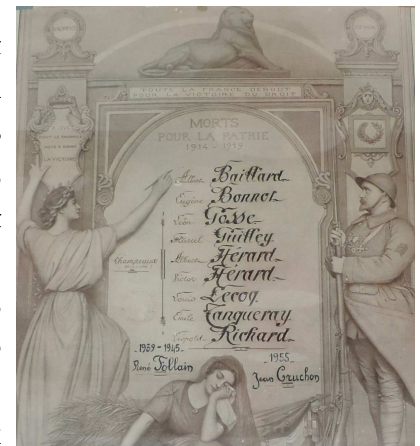 TOUTE LA FRANCE DEBOUT
POUR LA VICTOIRE DU DROIT
MORTS
POUR LA PATRIE
1914 - 1919
LA VICTOIRE
Champeaux
Baillard
Eugène Bonnot
Léon Gosse
Marcel Guilley
Albert Hérard
Victor Hérard
Louis Lecoq
Emile Tangueray
Léopold Richard
1939-1945
René Follain
1955
Jean Cruchon